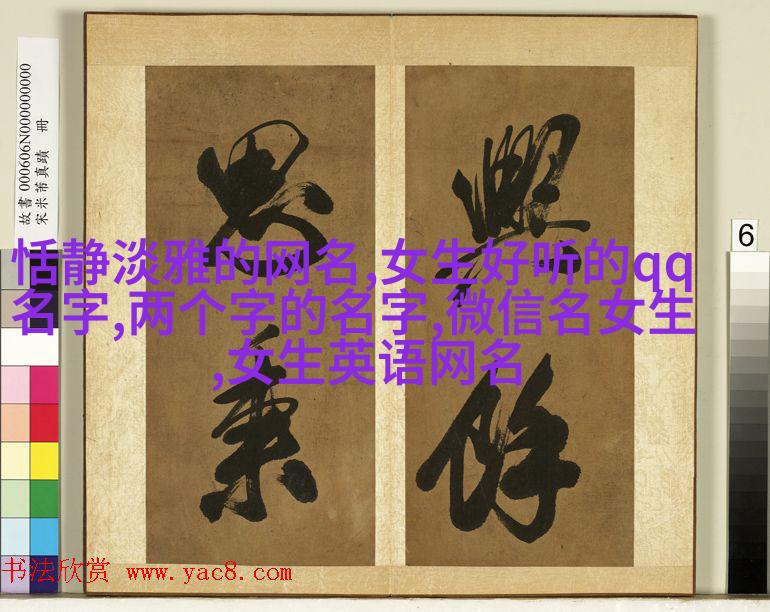 故書 000606N000000000
宋米芾真蹟 冊
餘
秉
恬静淡雅的网名,女生好听的qq
名字,两个字的名字,微信名女生
,女生英语网名
6
书法欣赏 www.yac8.com